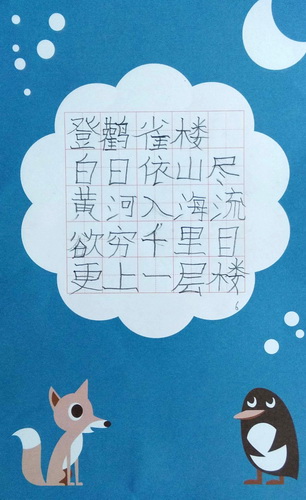 登鹳雀楼
白日依山尽
黄河入海流
欲穷千里日
更上一层楼